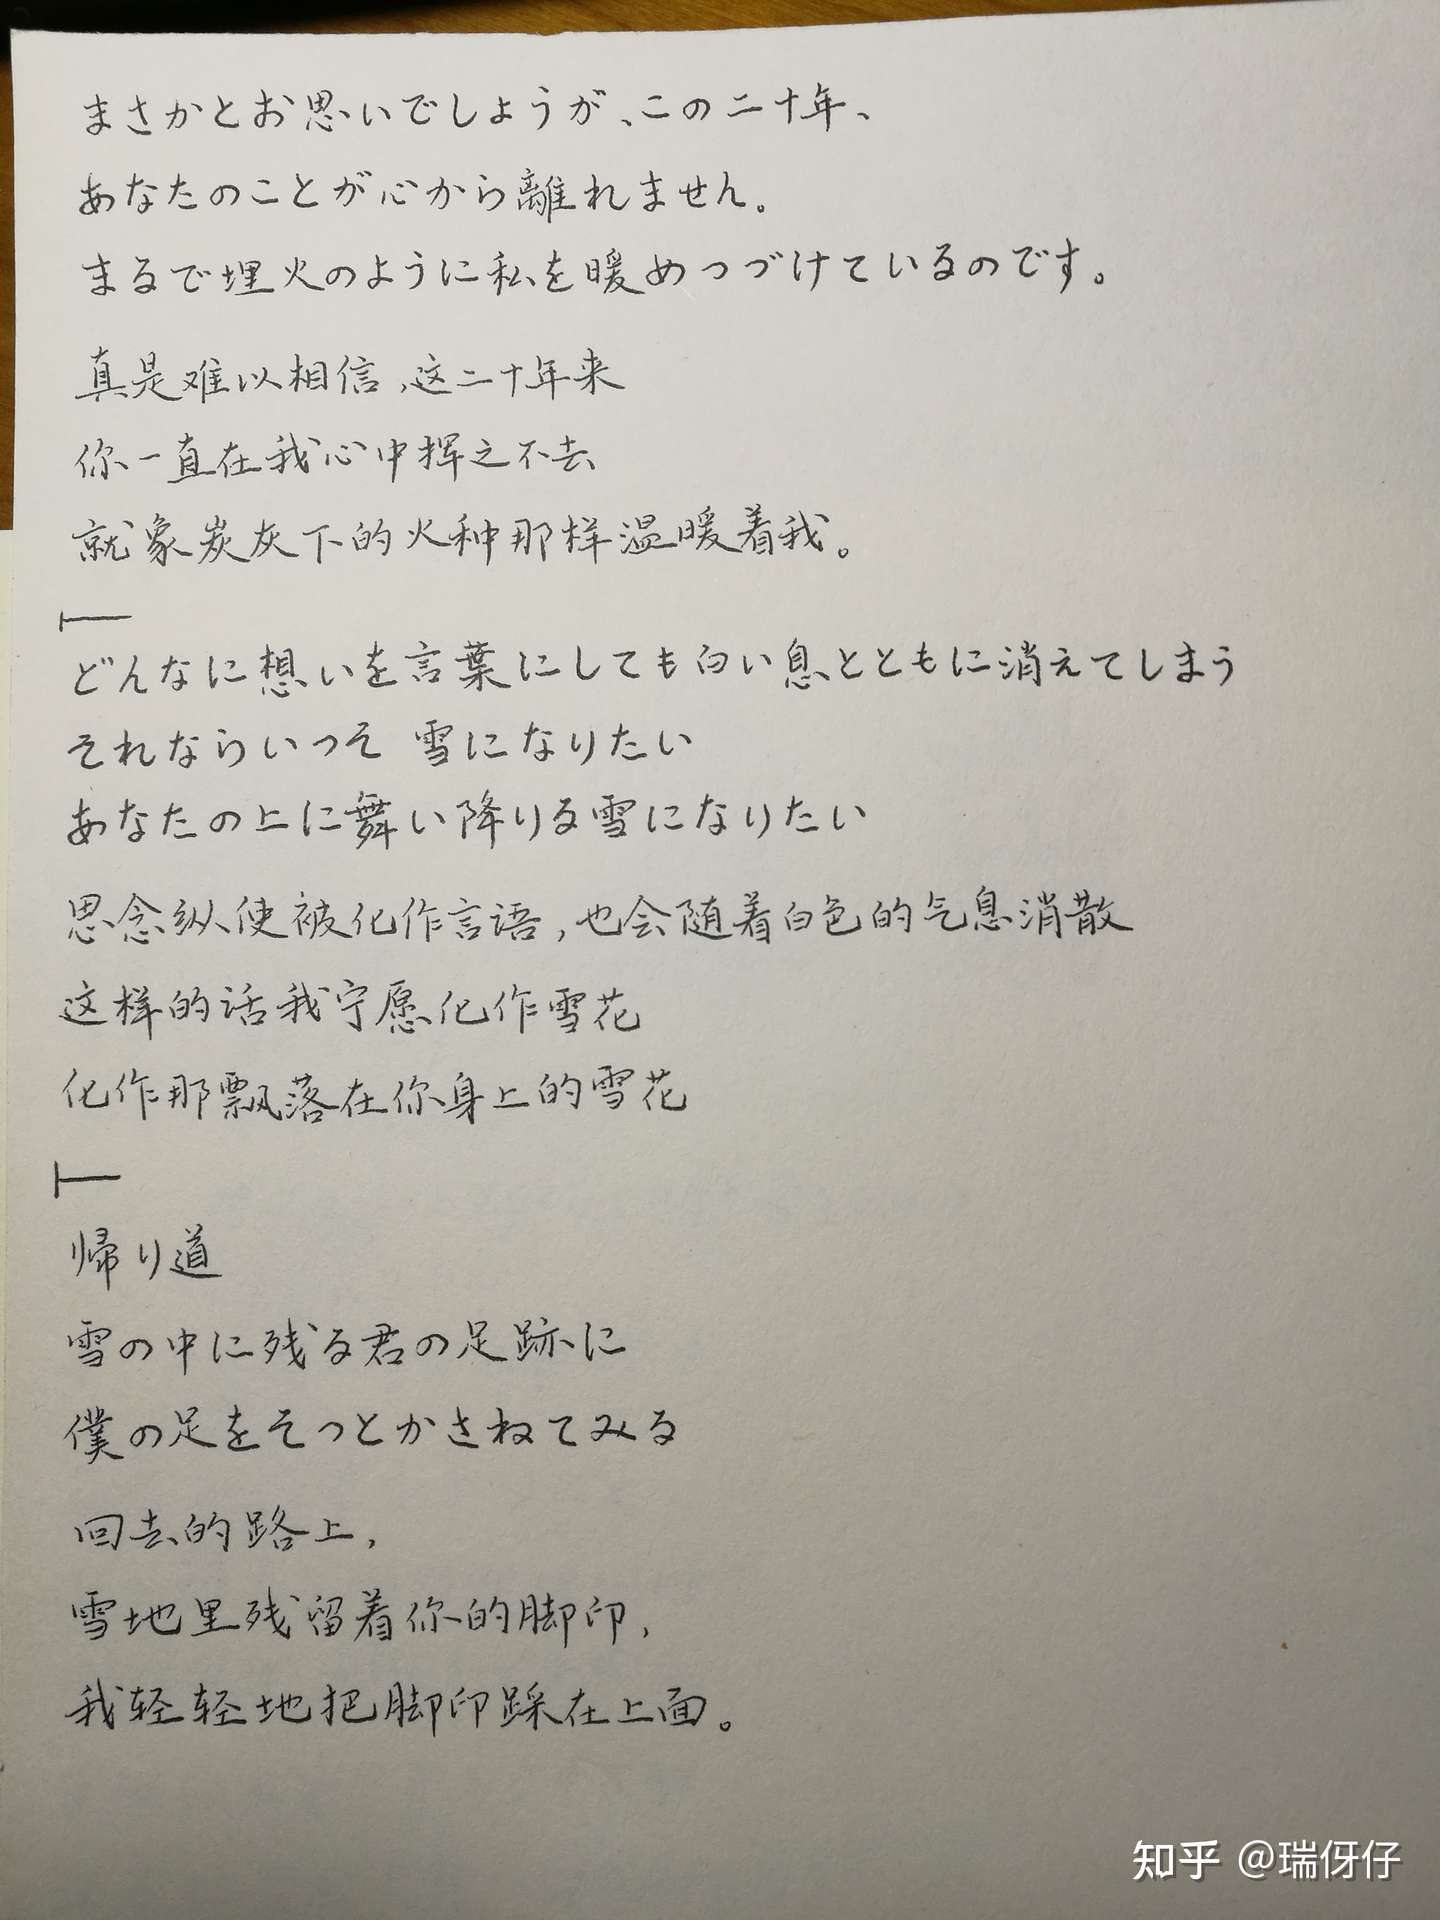 まさかとお思いでしょうが、この二十年、
あなたのことが心から離れません。
まるで埋火のように私を暖めつづけているのです。
真是难以相信,这二十年来
你一直在我心中挥之不去
就象炭灰下的火种那样温暖着我。
どんなに想いを言葉にしても白い息とともに消えてしまう
それならいっそ 雪になりたい
あなたの上に舞い降りる雪になりたい
思念纵使被化作言语,也会随着白色的气息消散
这样的话我宁愿化作雪花
化作那飘落在你身上的雪花
帰り道
雪の中に残る君の足跡に
僕の足をそっとかさねてみる
回去的路上,
雪地里残留着你的脚印,
我轻轻地把脚印踩在上面。
知乎 @瑞伢仔